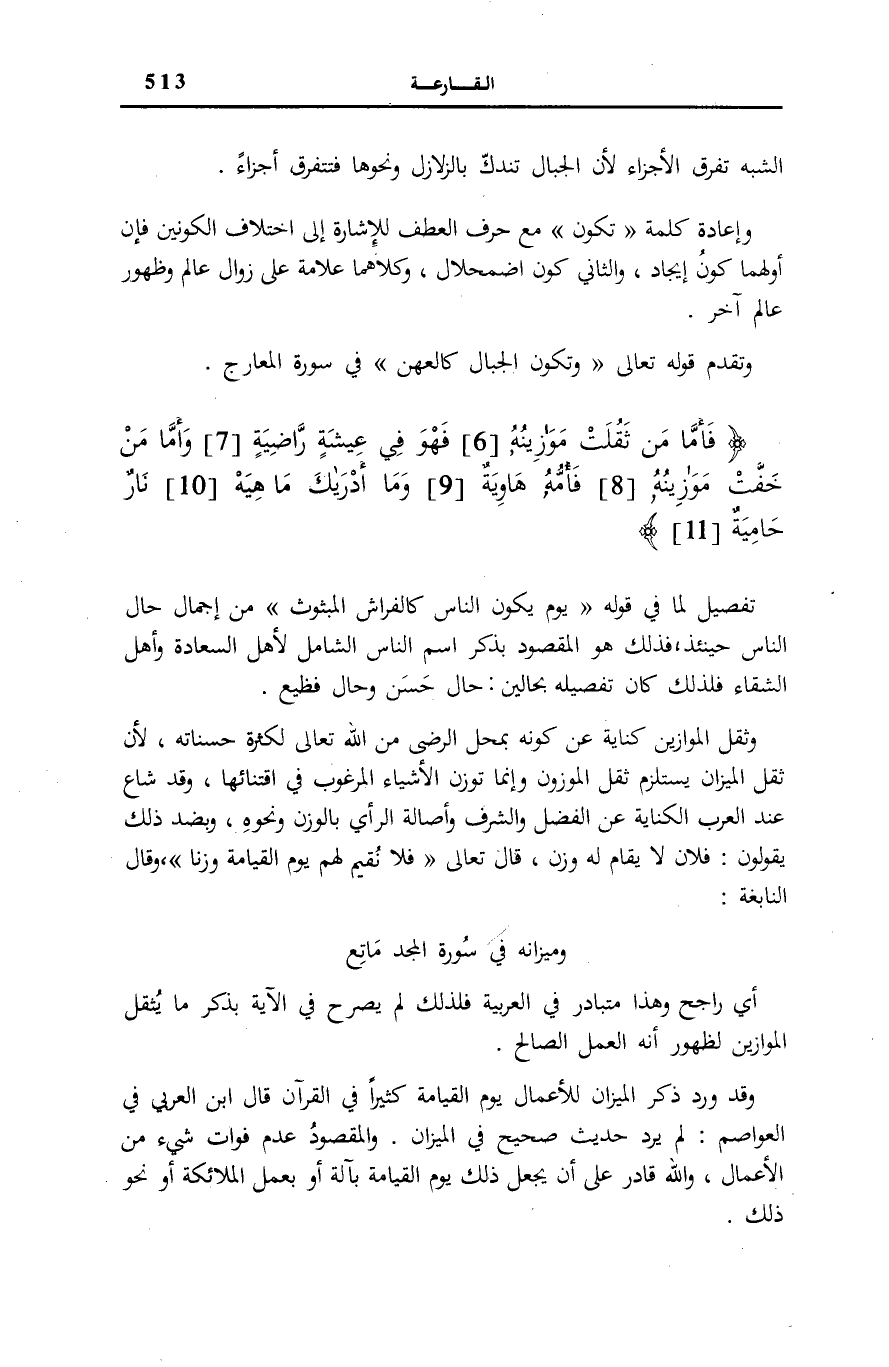 القـــارعـــة 513
الشبه تفرق الأجزاء لأن الجبال تندكّ بالزلازل ونحوها فتتفرق أجزاءً .
وإعادة كلمة « تكون » مع حرف العطف للإشارة إلى اختلاف الكونين فإن
أولهما كونُ إيجاد ، والثاني كون اضمحلال ، وكلاهما علامة على زوال عالم وظهور
عالم آخر .
وتقدم قوله تعالى « وتكون الجبال كالعهن » في سورة المعارج .
﴿ فَأَمَّا مَن ثَقُلَتْ مَوَٰزِينُهُۥ [6] فَهْوَ فِي عِيشَةٍ رَّاضِيَةٍ [7] وَأَمَّا مَنْ
خَفَّتْ مَوَٰزِينُهُۥ [8] فَأُمُّهُۥ هَاوِيَةٌ [9] وَمَا أَدْرَيٰكَ مَا هِيَهْ [10] نَارٌ
حَامِيَةٌ [11] ﴾
تفصيل لما في قوله « يوم يكون الناس كالفراش المبثوث » من إجمال حال
الناس حينئذ،فذلك هو المقصود بذكر اسم الناس الشامل لأهل السعادة وأهل
الشقاء فلذلك كان تفصيله بحالين : حال حَسَن وحال فظيع .
وثقل الموازين كناية عن كونه بمحل الرضى من الله تعالى لكثرة حسناته ، لأن
ثقل الميزان يستلزم ثقل الموزون وإنما توزن الأشياء المرغوب في اقتنائها ، وقد شاع
عند العرب الكناية عن الفضل والشرف وأصالة الرأي بالوزن ونحوهِ ، وبضد ذلك
يقولون : فلان لا يقام له وزن ، قال تعالى « فلا نُقيم لهم يوم القيامة وزنا »،وقال
النابغة :
وميزانه في سُورة المجد مَاتِع
أي راجح وهذا متبادر في العربية فلذلك لم يصرح في الآية بذكر ما يُثقل
الموازين لظهور أنه العمل الصالح .
وقد ورد ذكر الميزان للأعمال يوم القيامة كثيراً في القرآن قال ابن العربي في
العواصم : لم يرد حديث صحيح في الميزان . والمقصودُ عدم فوات شيء من
الأعمال ، والله قادر على أن يجعل ذلك يوم القيامة بآلة أو بعمل الملائكة أو نحو
ذلك .